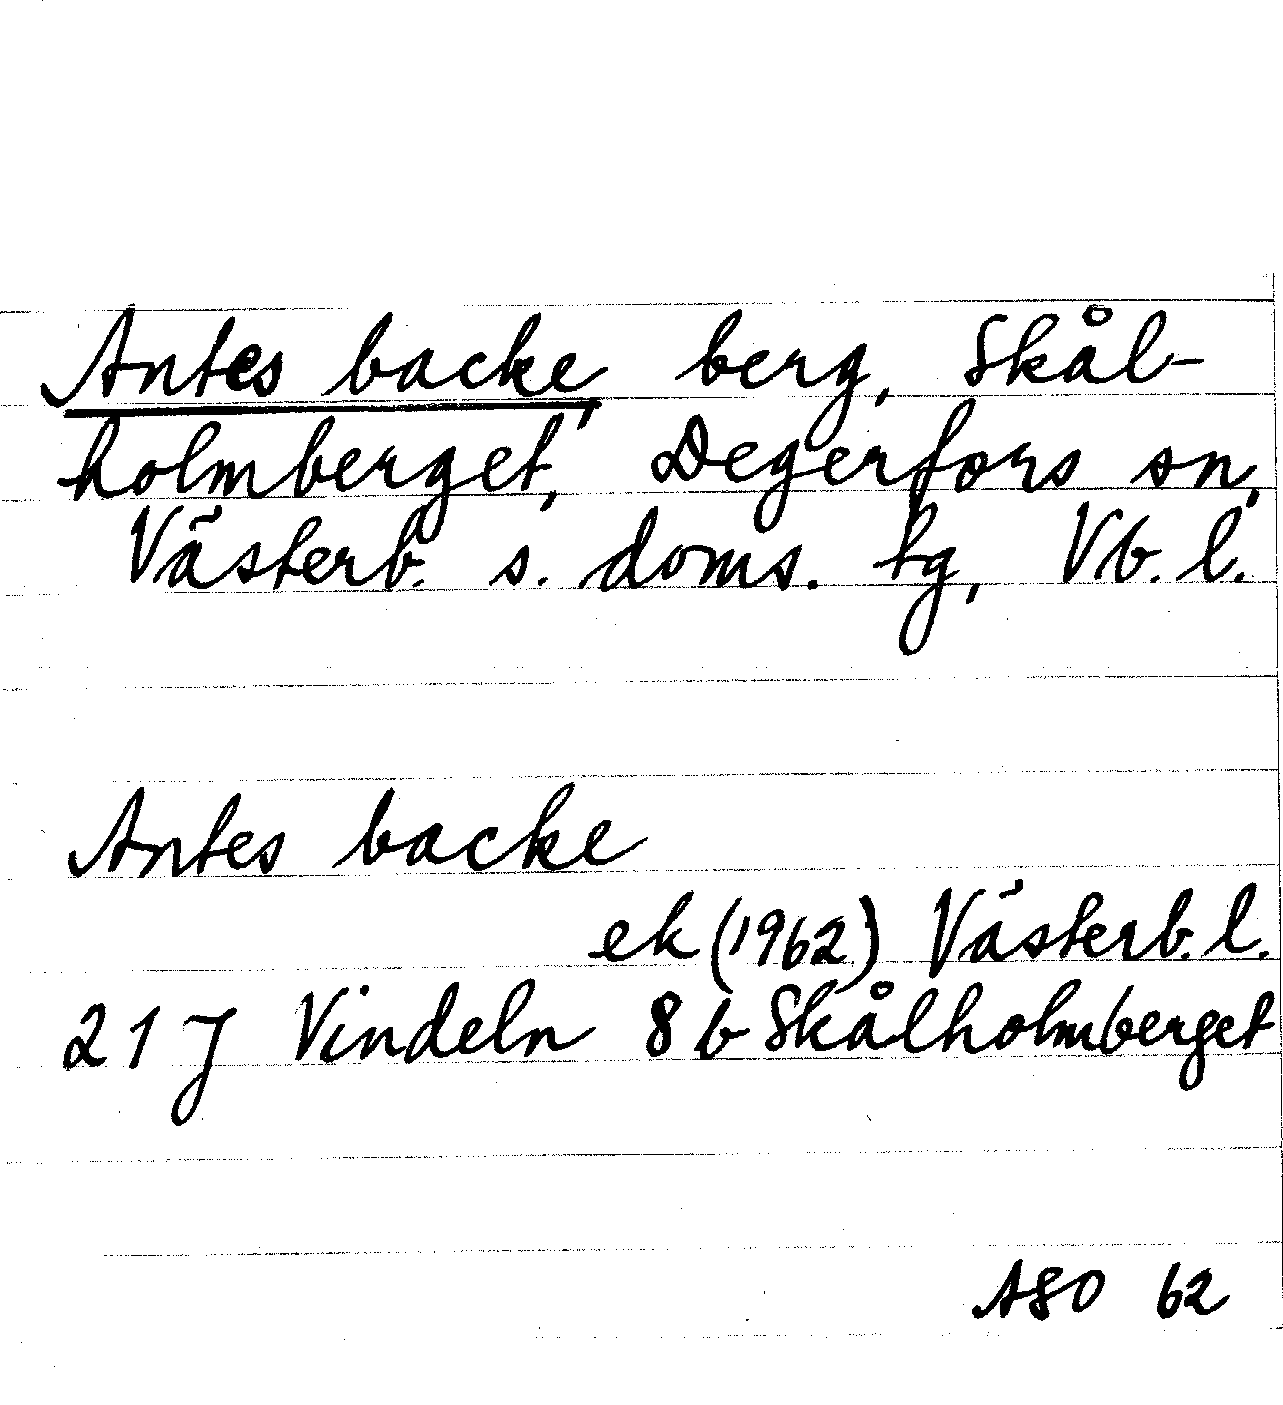 Antes backe, berg, Skål-
holmberget, Degerfors sn,
Västerb. s. doms. tg, Vb. l.
Antes backe
ek (1962) Västerb. l.
21 J Vindeln 8 b Skålholmberget
ASO 62